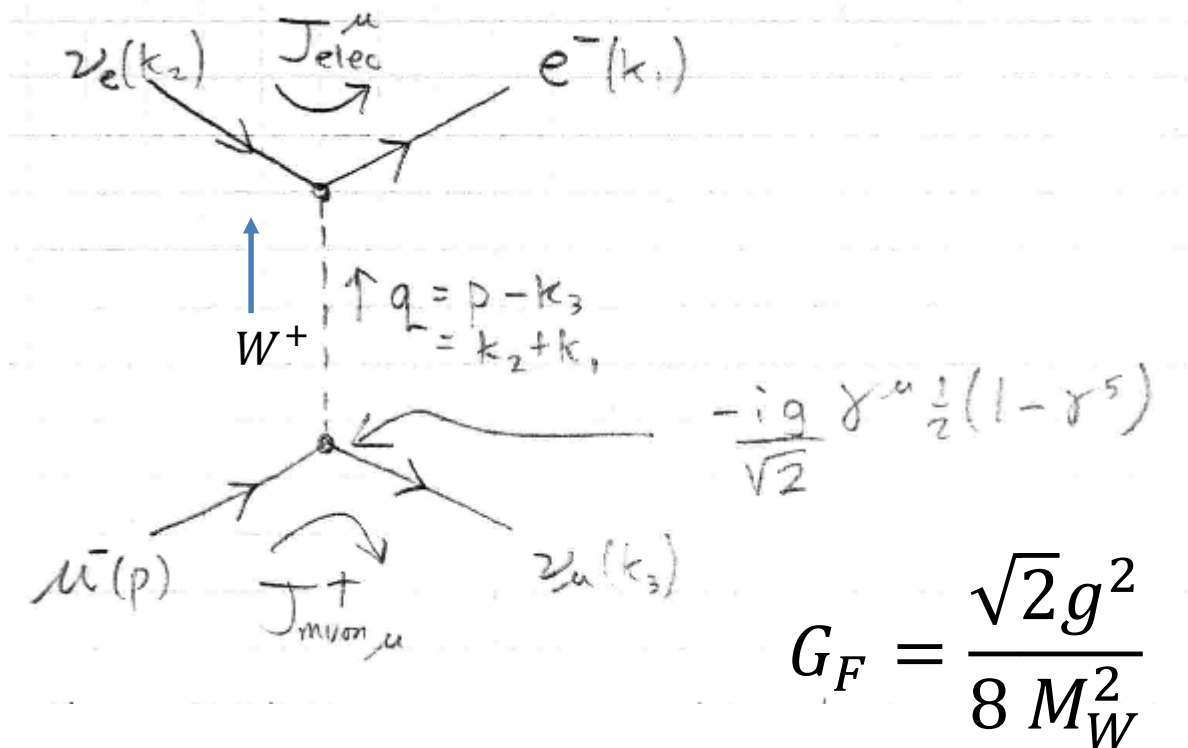 ν_e(k₂) J^μ_elec e⁻(k₁)
↑ q = p − k₃
= k₂ + k₁
W⁺
−ig/√2 γ^μ ½(1 − γ⁵)
μ⁻(p) J†_muon μ ν_μ(k₃)
G_F = √2g²/8 M_W²